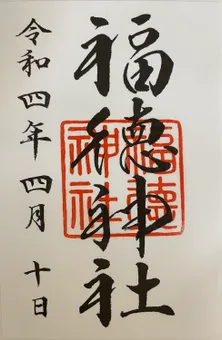 福徳神社
令和四年四月十日
福徳
神社